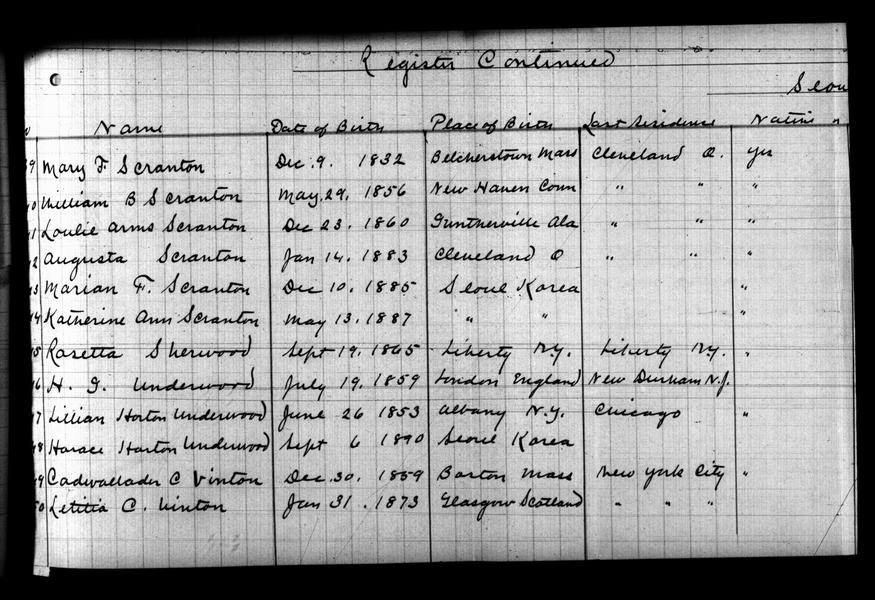 Register Continued
Seou
Name Date of Birth Place of Birth Last Residence Native
39 Mary F. Scranton Dec. 9. 1832 Belcherstown Mass Cleveland O. yes
40 William B Scranton May. 29. 1856 New Haven Conn " " "
41 Loulie Arms Scranton Dec 23. 1860 Guntherville Ala " " "
42 Augusta Scranton Jan 14. 1883 Cleveland O " " "
43 Marian F. Scranton Dec 10. 1885 Seoul Korea "
44 Katherine Ann Scranton May 13. 1887 " " "
45 Rosetta Sherwood Sept 19. 1865 Liberty N.Y. Liberty N.Y. "
46 H. G. Underwood July 19. 1859 London England New Durham N.J.
47 Lillian Horton Underwood June 26 1853 Albany N.Y. Chicago "
48 Horace Horton Underwood Sept 6 1890 Seoul Korea
49 Cadwallader C Vinton Dec. 30. 1859 Boston Mass New York City "
50 Letitia C. Vinton Jan 31. 1873 Glasgow Scotland " " "